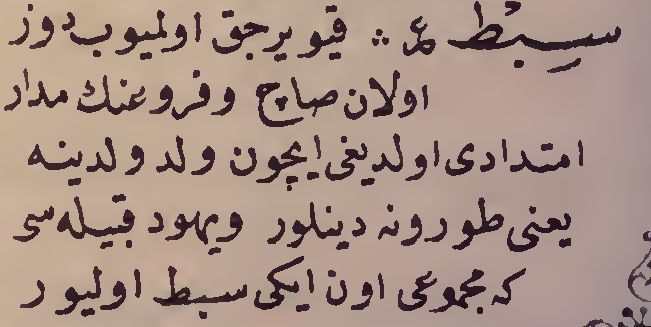 سِبْط ع ∴ قیویرجق اولمیوب دوز
اولان صاچ وفروعنك مدار
امتدادی اولدیغی ایچون ولد ولدینه
یعنی طورونه دینلور ویهود قبیله سی
که مجموعی اون ایکی سبط اولیور